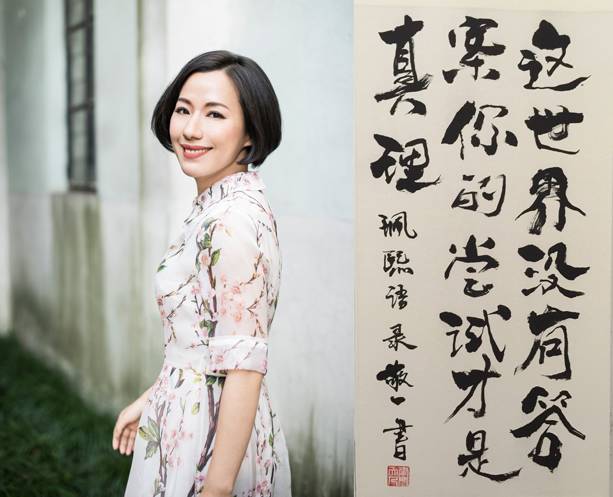 这世界没有答
案你的尝试才是
真理
珮熙语录敬一書